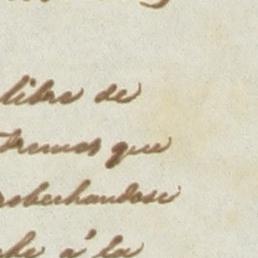 libre de
tremos que
robechandose
á la